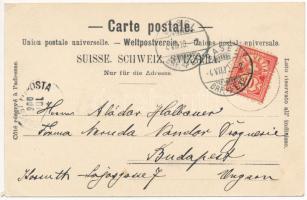 — Carte postale. —
Union postale universelle. — Weltpostverein. — Unione postale universale.
SUISSE. SCHWEIZ. SVIZZERA.
Nur für die Adresse
Côté réservé à l'adresse.
Lato riservato all' indirizzo.
Herrn Aladár
Firma Neruda Nandor Drogueria
Budapest
Kossuth Lajos 7
Ungarn